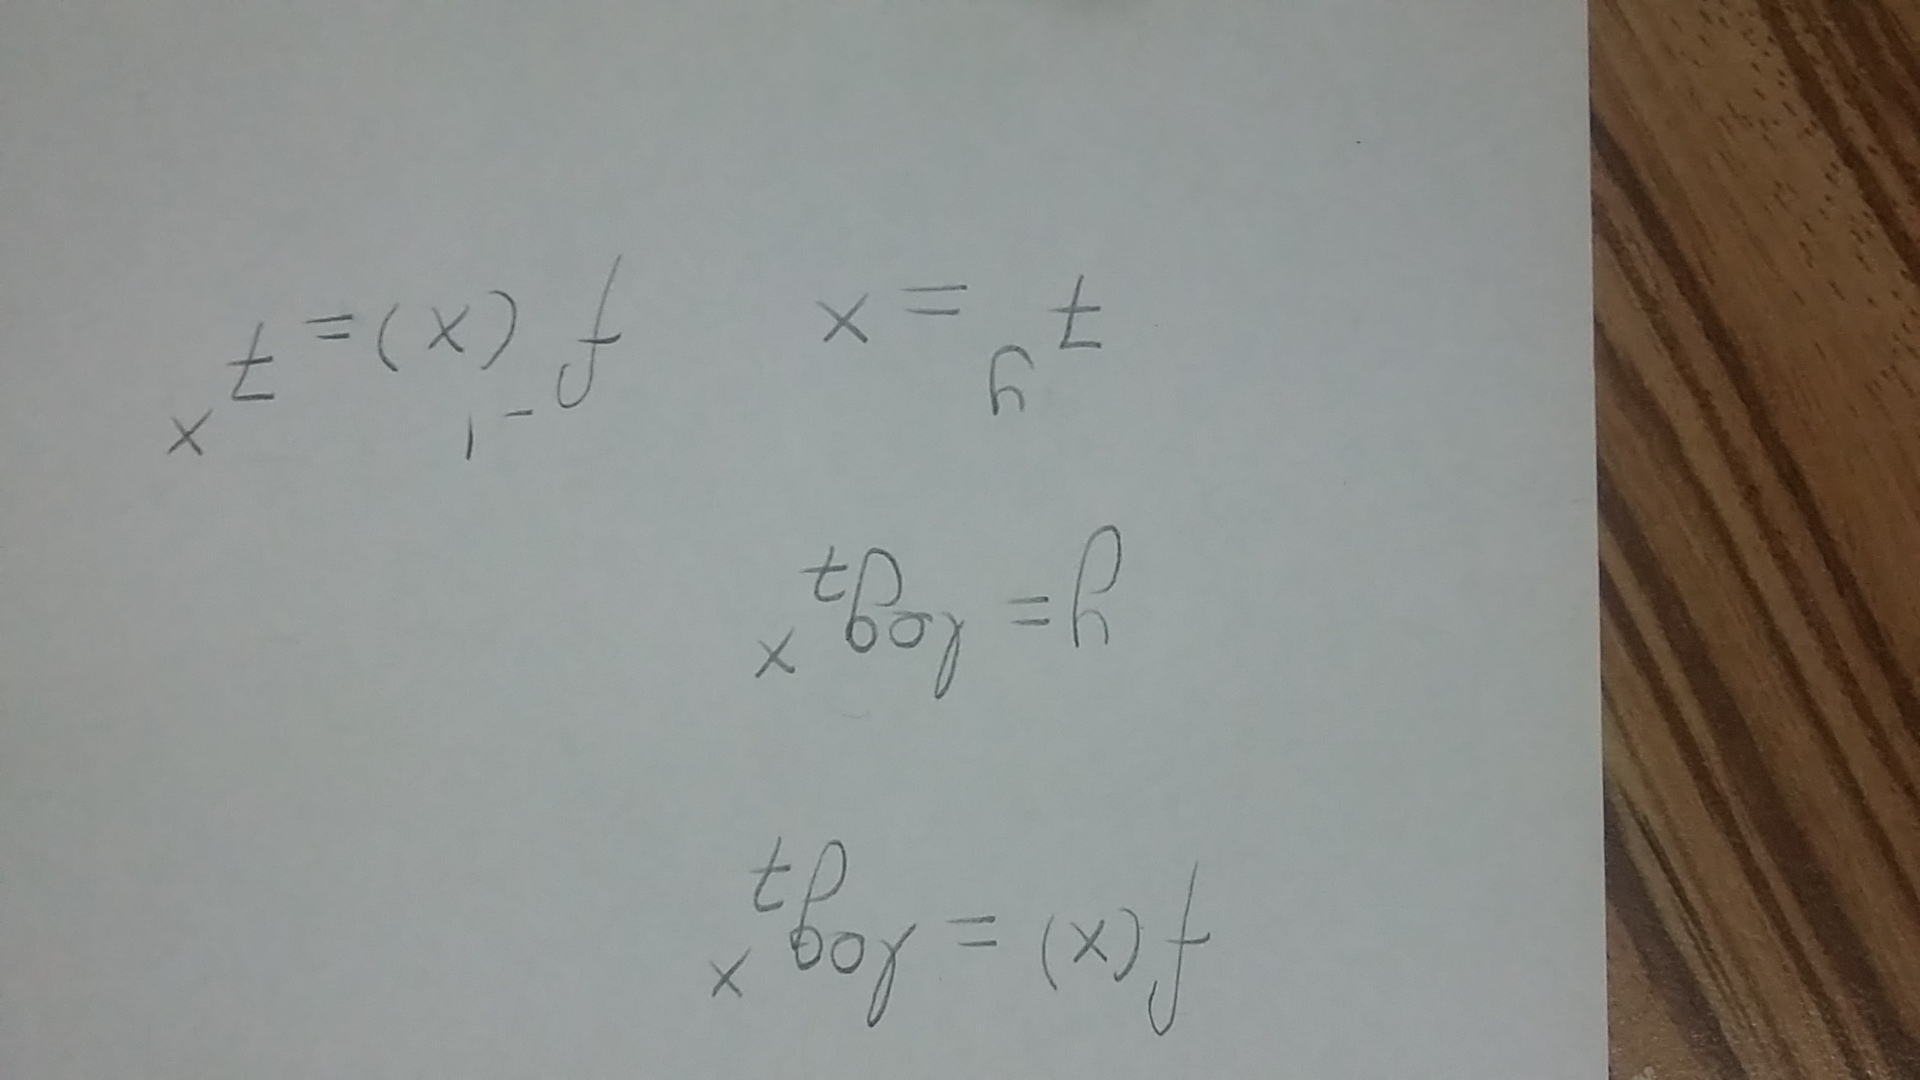 f(x) = log₇ x
y = log₇ x
7^y = x   f^-1(x) = 7^x